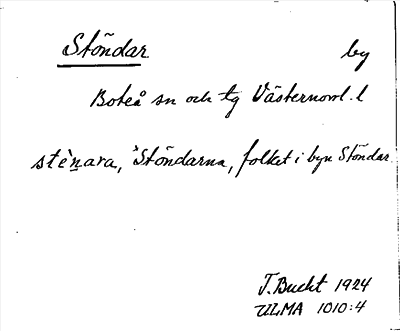 Stöndar by
Boteå sn och tg Västernorrl. l
stèn̲ara, "Stöndarna, folket i byn Stöndar.
T. Bucht 1924
ULMA 1010:4